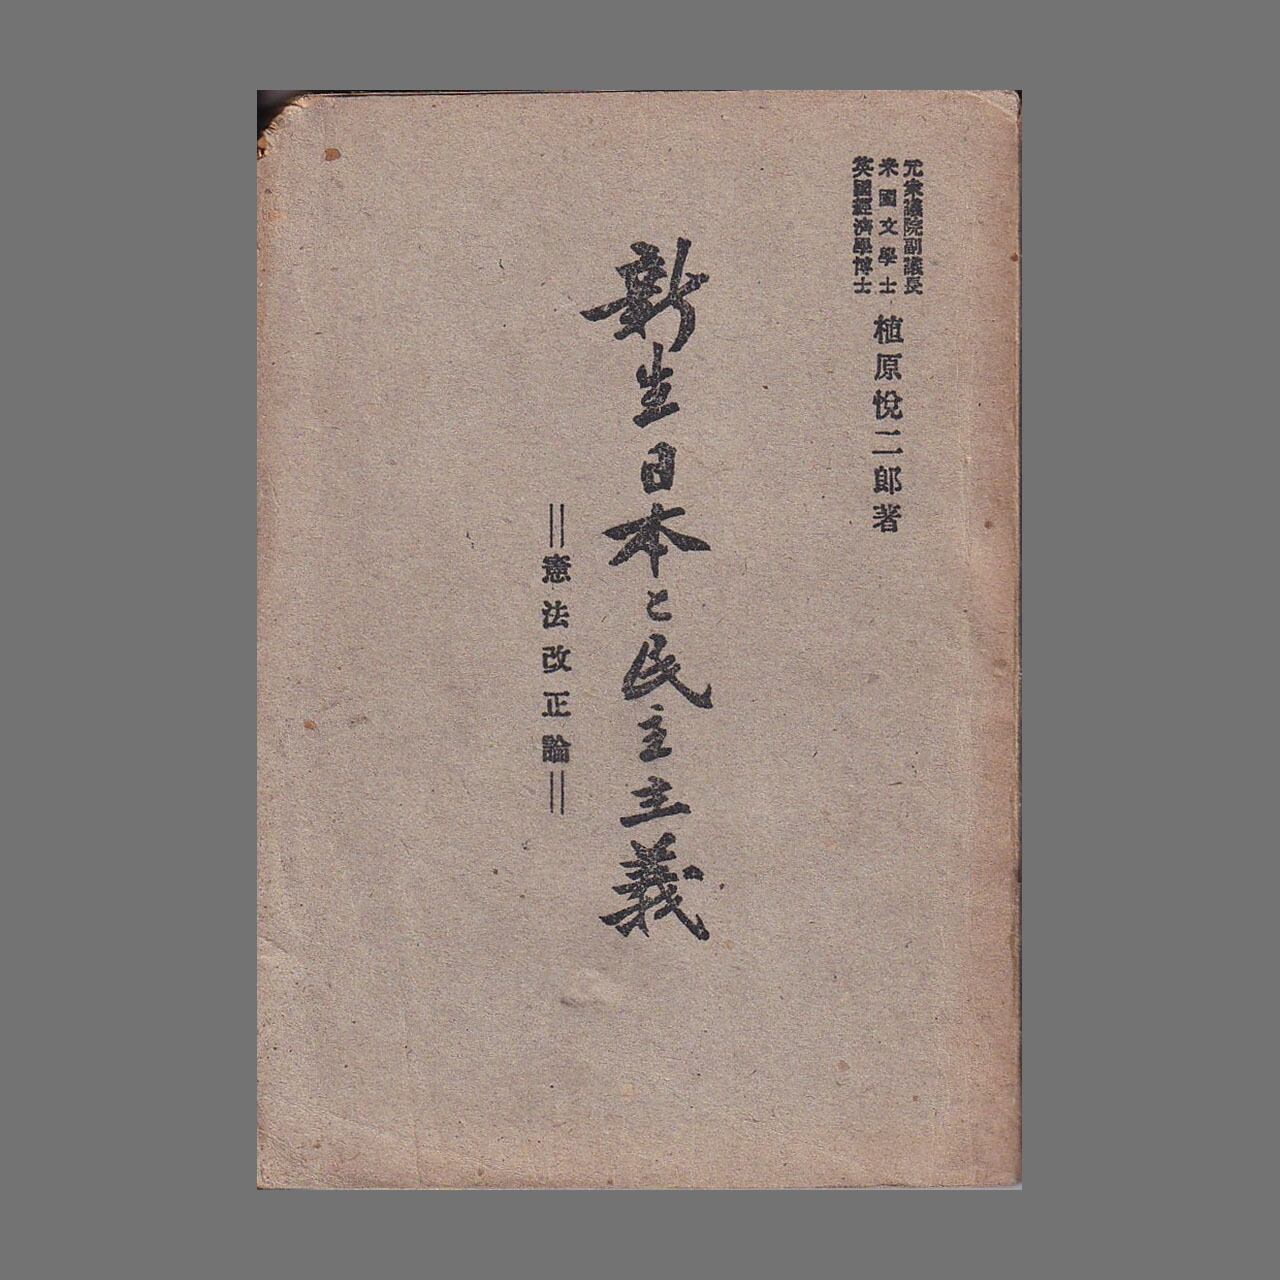 元衆議院副議長
米國文學士
英國經濟學博士
植原悅二郎著
新生日本と民主主義
＝憲法改正論＝